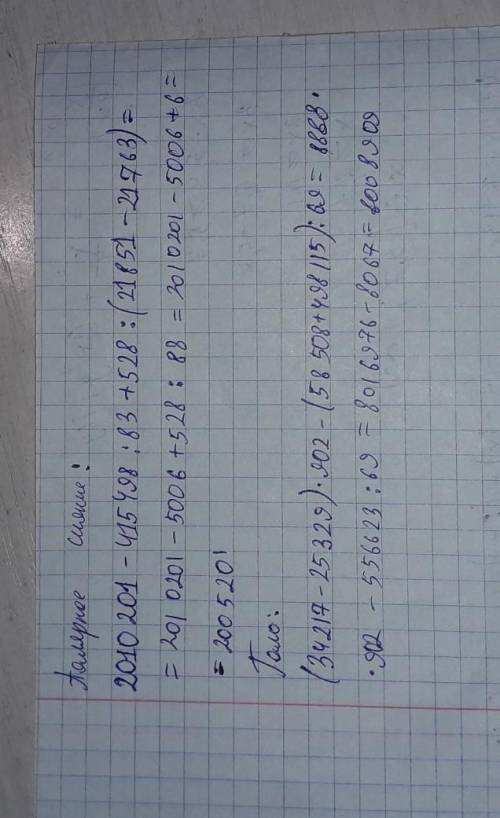 Полярное сияние:
2010201 - 415498 : 83 + 528 : (21851 - 21763) =
= 2010201 - 5006 + 528 : 88 = 2010201 - 5006 + 6 =
= 2005201
Гало:
(34217 - 25329) · 902 - (58508 + 498115) : 69 = 8888 ·
· 902 - 556623 : 69 = 8016976 - 8067 = 8008909